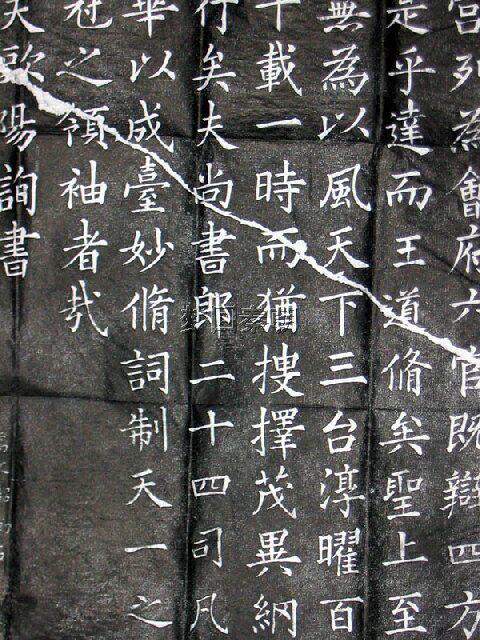 宮列為會府六官既辯四方
是乎達而王道脩矣聖上至
無為以風天下三台淳曜百
千載一時而猶搜擇茂異網
行矣夫尚書郎二十四司凡
華以成臺妙脩詞制天一之
冠之領袖者哉
歐陽詢書